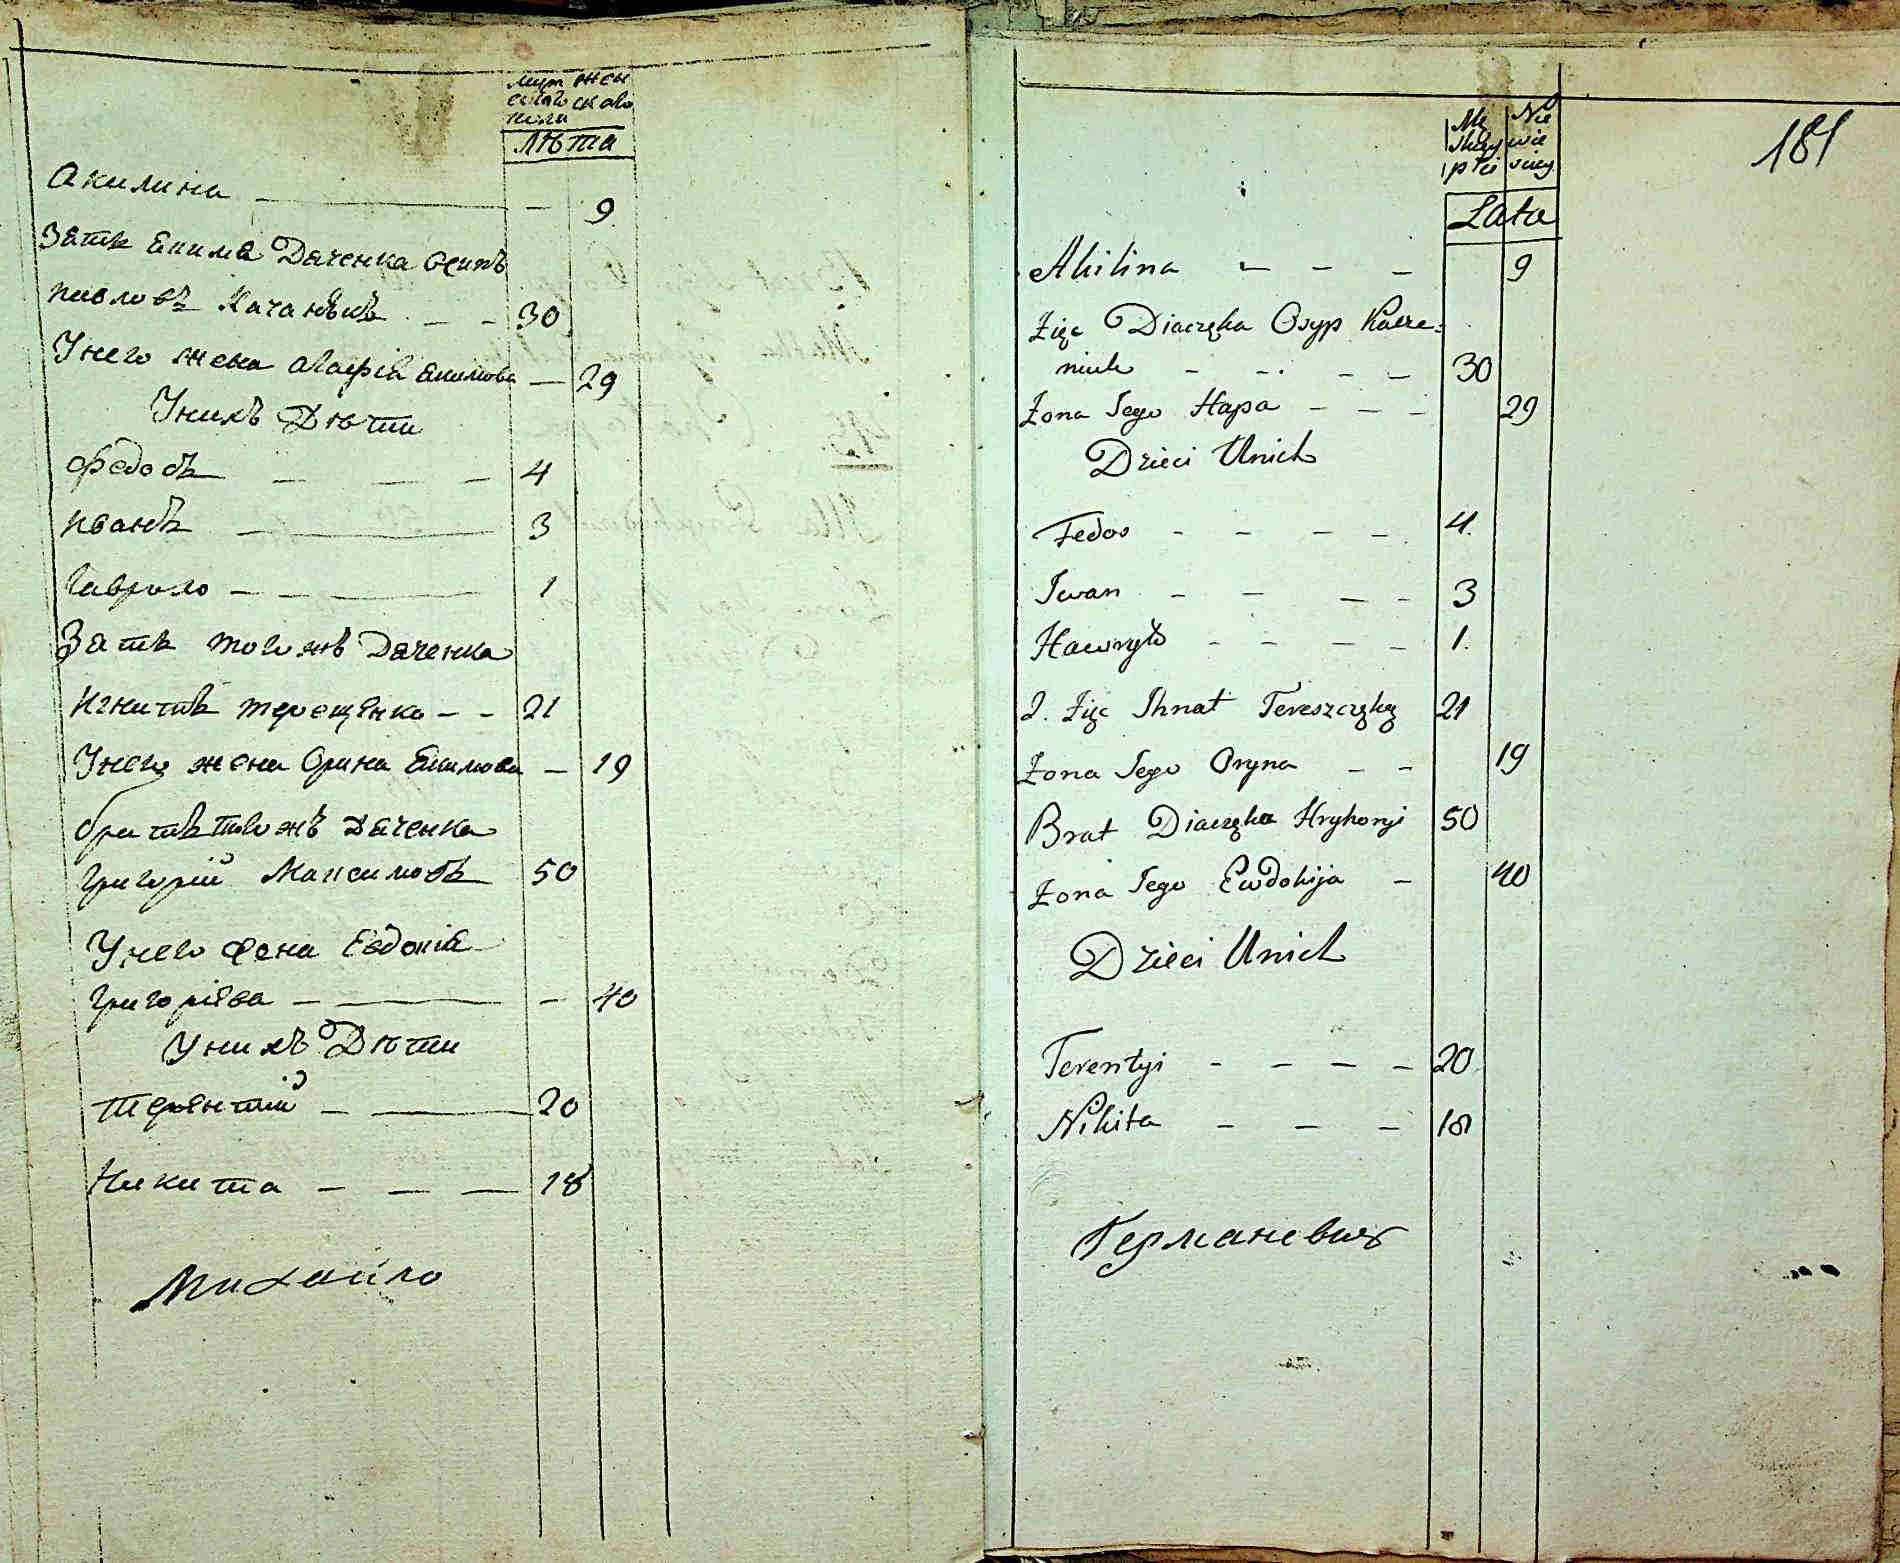 муж жен
скаго скаго
пола
Лѣта
Акилина 9
Зять Екима Даченка Осипъ
Павловъ Качанѣкъ 30
Унего жена Агафія Екимова 29
Унихъ Дѣти
Федосъ 4
Иванъ 3
Гаврило 1
Зять тогожъ Даченка
Игнатъ терещенко 21
Унего жена Орина Екимова 19
братъ тогожъ Даченка
Григорій Максимовъ 50
Унего жена Евдокія
Григоріева 40
Унихъ Дѣти
терентій 20
Никита 18
Михаило
181
Mę Nie
skiey wie
płci sciey
Lata
Akilina 9
Zięc Diaczęka Osyp Kacze=
niuk 30
Żona Jego Hapa 29
Dzieci Unich
Fedos 4.
Iwan 3
Hawryło 1.
2. Zięc Ihnat Tereszczęky 21
Żona Jego Oryna 19
Brat Diaczęka Hryhoryi 50
Żona Jego Ewdokija 40
Dzieci Unich
Terentyi 20
Nikita 18
Германевич